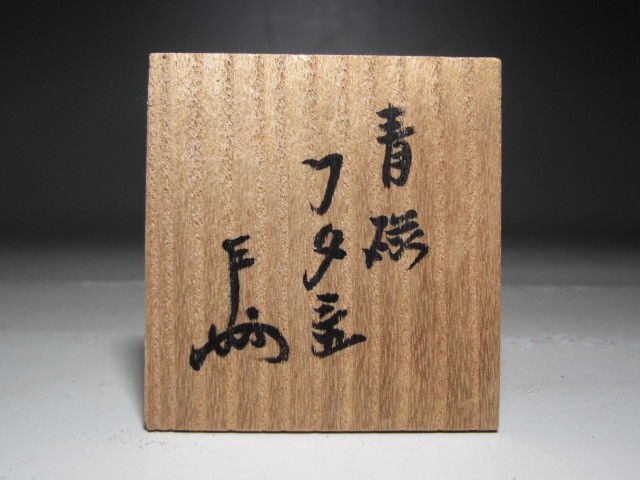 青磁
フタ壺